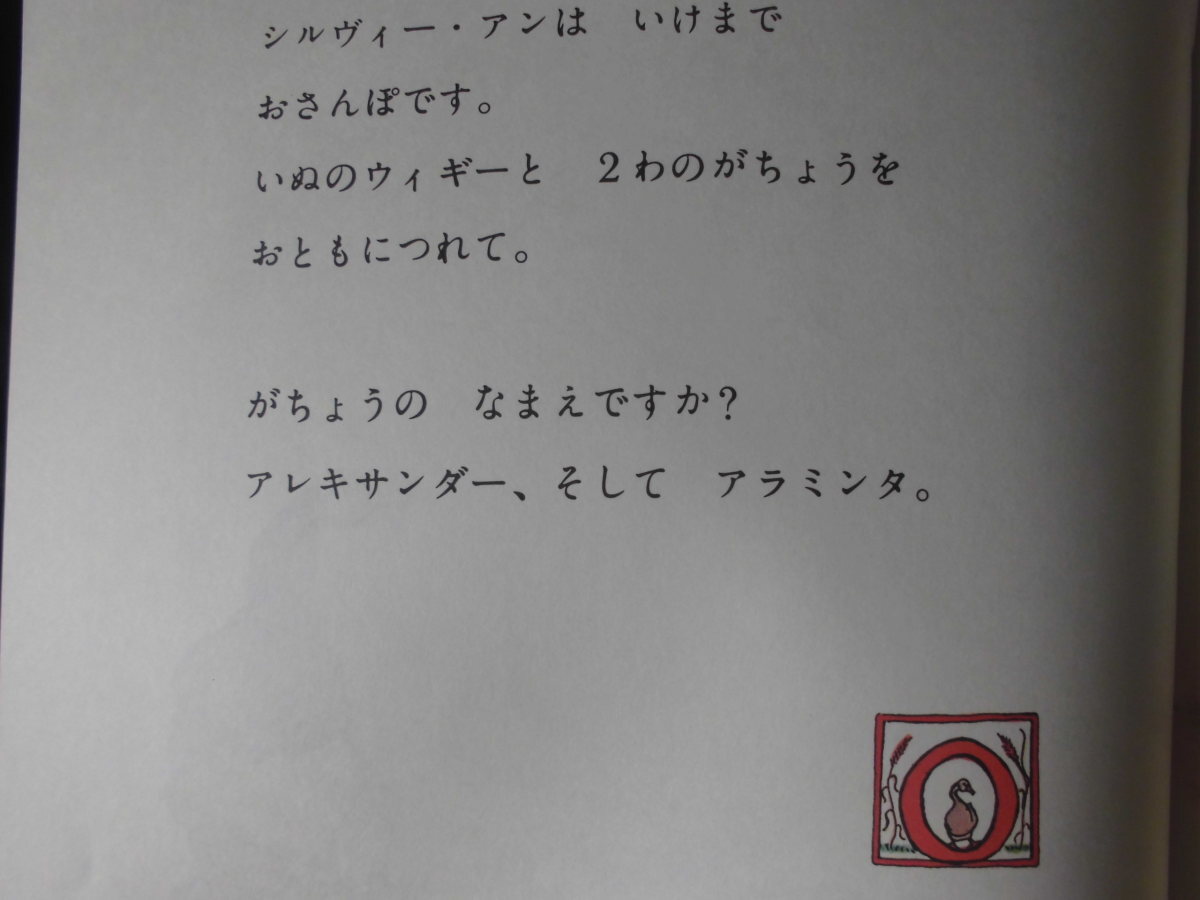 シルヴィー・アンは　いけまで
おさんぽです。
いぬのウィギーと　２わのがちょうを
おともにつれて。
がちょうの　なまえですか？
アレキサンダー、そして　アラミンタ。
O